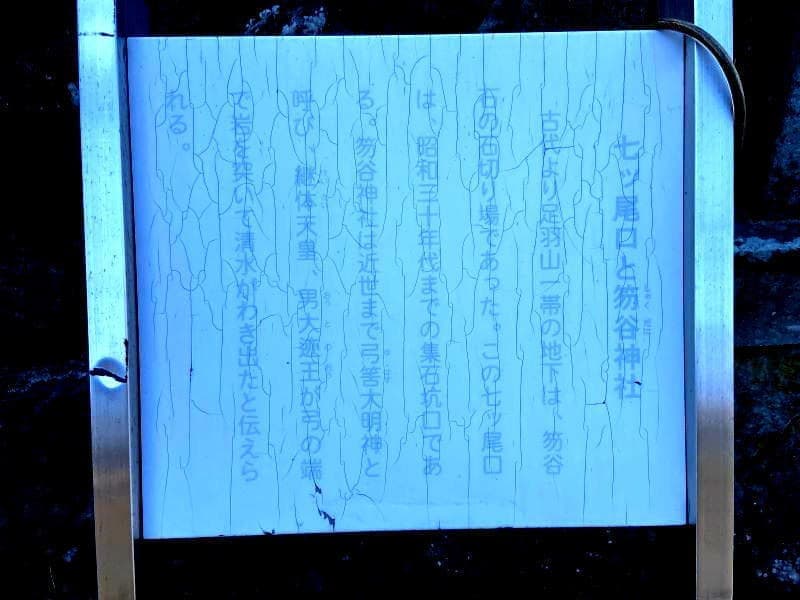 七ッ尾口と笏谷神社
しゃくだに
古代より足羽山一帯の地下は、笏谷
石の石切り場であった。この七ッ尾口
は、昭和三十年代までの集石坑口であ
る。笏谷神社は近世まで弓筈大明神と
ゆはず
呼び、継体天皇、男大迩王が弓の端
けいたい
おおとのおう
で岩を突いて清水がわき出たと伝えら
れる。